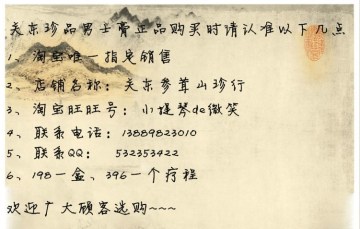 关东珍品男士膏正品购买时请认准以下几点
1、淘宝唯一指定销售
2、店铺名称：关东参茸山珍行
3、淘宝旺旺号：小提琴de微笑
4、联系电话：13889823010
5、联系QQ：532353422
6、198一盒、396一个疗程
欢迎广大顾客选购~~~